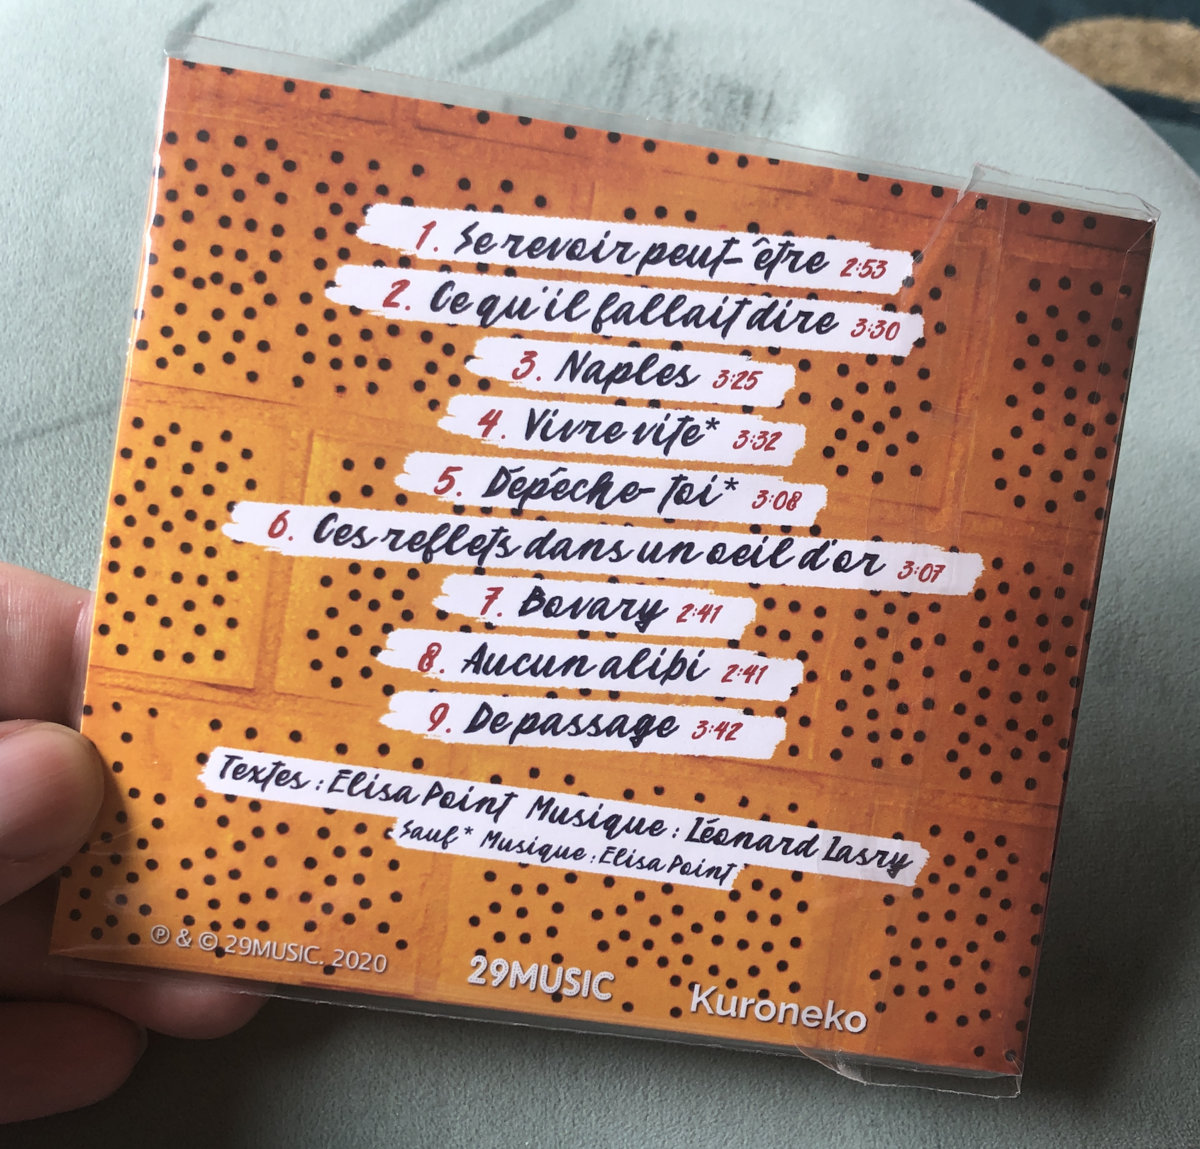 1. Se revoir peut-être 2:53
2. Ce qu'il fallait dire 3:30
3. Naples 3:25
4. Vivre vite* 3:32
5. Dépéche-toi* 3:08
6. Ces reflets dans un oeil d'or 3:07
7. Bovary 2:41
8. Aucun alibi 2:41
9. De passage 3:42
Textes : Elisa Point Musique : Léonard Lasry
Sauf* Musique : Elisa Point
℗ & © 29MUSIC. 2020
29MUSIC
Kuroneko